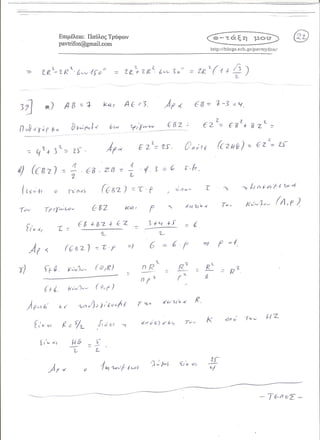 Επιμέλεια: Παύλος Τρύφων
pavtrifon@gmail.com
e-τάξη μου
http://blogs.sch.gr/pavtryfon/
22
= 2R²-2R² συν150° = 2R²+2R² συν30° = 2R²(1+√3/2)
39] α) ΑΒ=7 και ΑΕ=3. Άρα ΕΒ=7-3=4.
Πυθαγόρειο Θεώρημα στο τρίγωνο ΕΒΖ: ΕΖ²=ΕΒ²+ΒΖ²=
=4²+3²=25. Άρα ΕΖ²=25. Οπότε (ΕΖΗΘ)=ΕΖ²=25
β) (ΕΒΖ)=1/2 · ΕΒ · ΖΒ = 1/2 · 4 · 3 = 6 τ.μ.
Ισχύει ο τύπος (ΕΒΖ)=τ·ρ, όπου τ η ημιπερίμετρος
του τριγώνου ΕΒΖ και ρ η ακτίνα του κύκλου (Λ,ρ)
Είναι τ = ΕΒ+ΒΖ+ΕΖ/2 = 3+4+5/2 = 6
Άρα (ΕΒΖ)=τ·ρ ⇒ 6=6·ρ ⇒ ρ=1.
γ) Εμβ. κύκλου (Ο,R) / Εμβ. κύκλου (Λ,ρ) = πR²/πρ² = R²/ρ² = R²/1 = R²
Αρκεί να υπολογίσουμε την ακτίνα R.
Είναι R=5/2 διότι η απόσταση του Κ από την ΗΖ
είναι ΗΘ/2 = 5/2
Άρα ο ζητούμενος λόγος είναι 25/4
- ΤΕΛΟΣ -